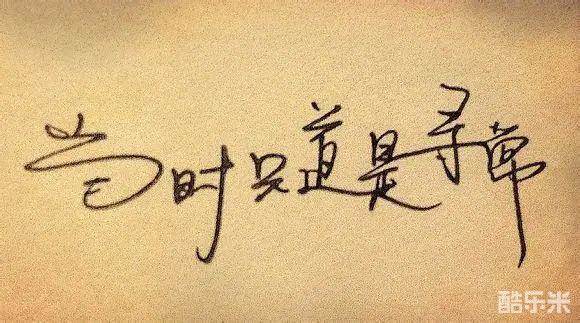 当时只道是寻常
酷乐米